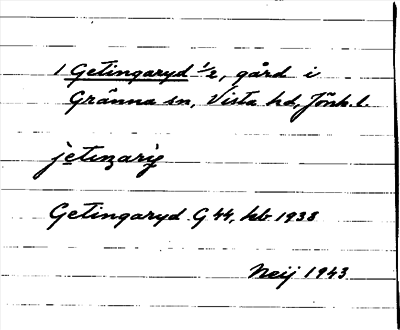 1 Getingaryd 1/2, gård i
Gränna sn, Vista hd, Jönk. l.
Getingaryd G 44, hb 1938
Neij 1943